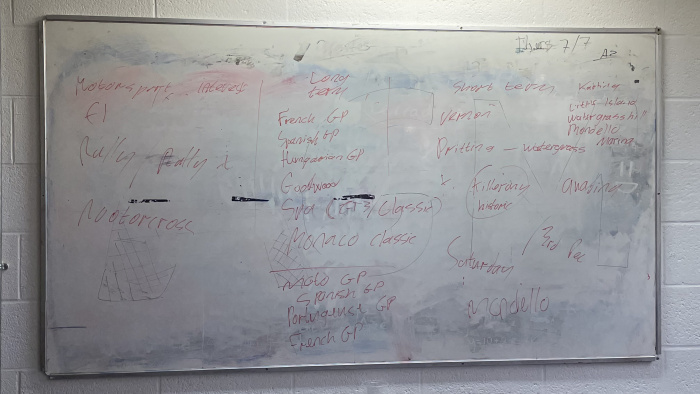 Thurs 7/7
A2
Motorsport Interest
F1
Rally, Rally X
Motorcross
Long
term
French GP
Spanish GP
Hungarian GP
Goodwood
Spa (GT3) Classic
Monaco classic
Moto GP
Spanish GP
Portuguese GP
French GP
Short term
Vernon
Drifting – watergrass
X
Killarney
historic
Saturday / 3rd
Mondello
Karting
Little Island
watergrasshill
Mondello